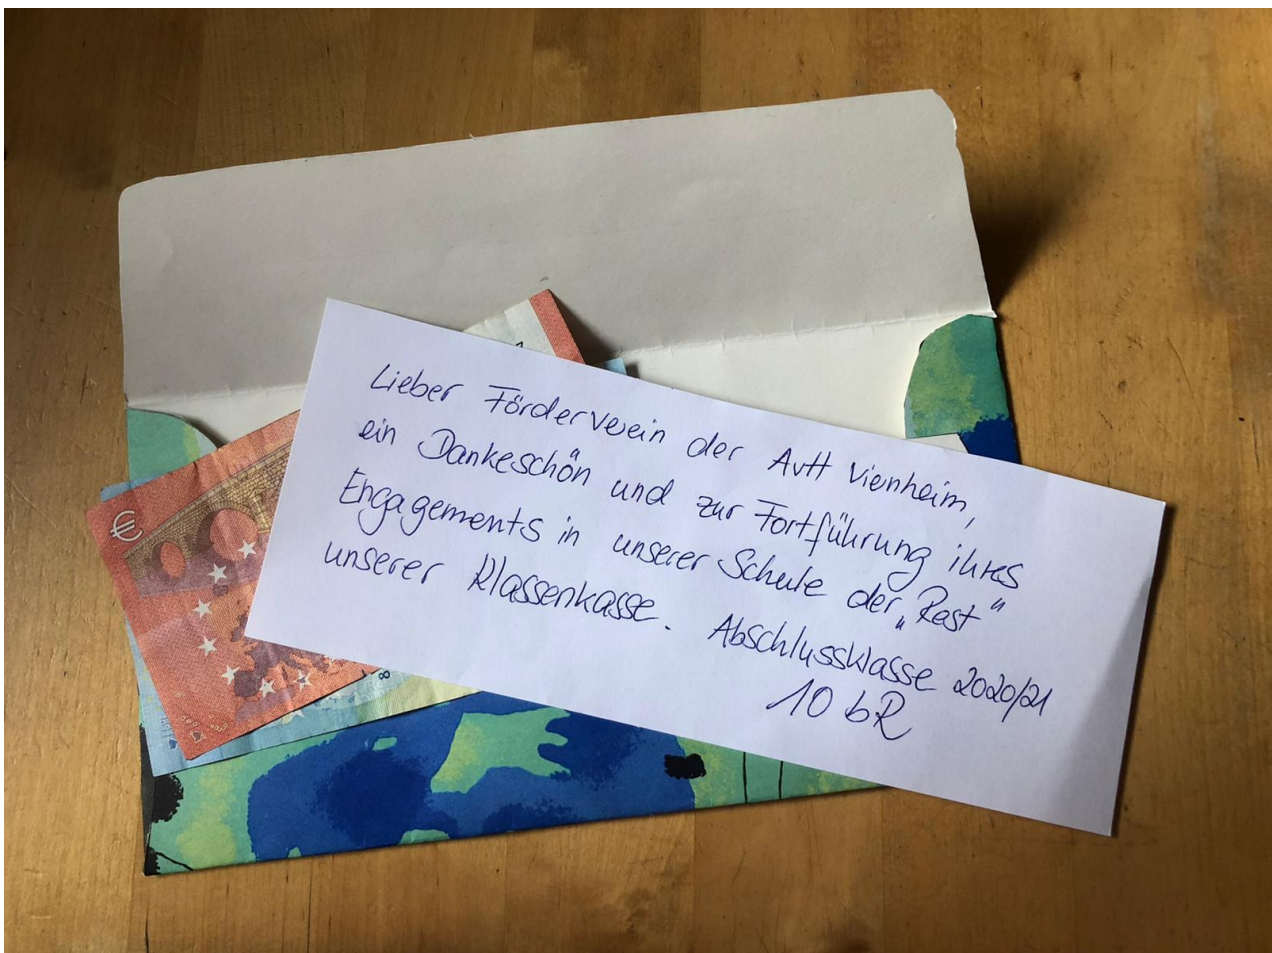 Lieber Förderverein der AvH Viernheim,
ein Dankeschön und zur Fortführung ihres
Engagements in unserer Schule der „Rest“
unserer Klassenkasse. Abschlussklasse 2020/21
10 bR
€